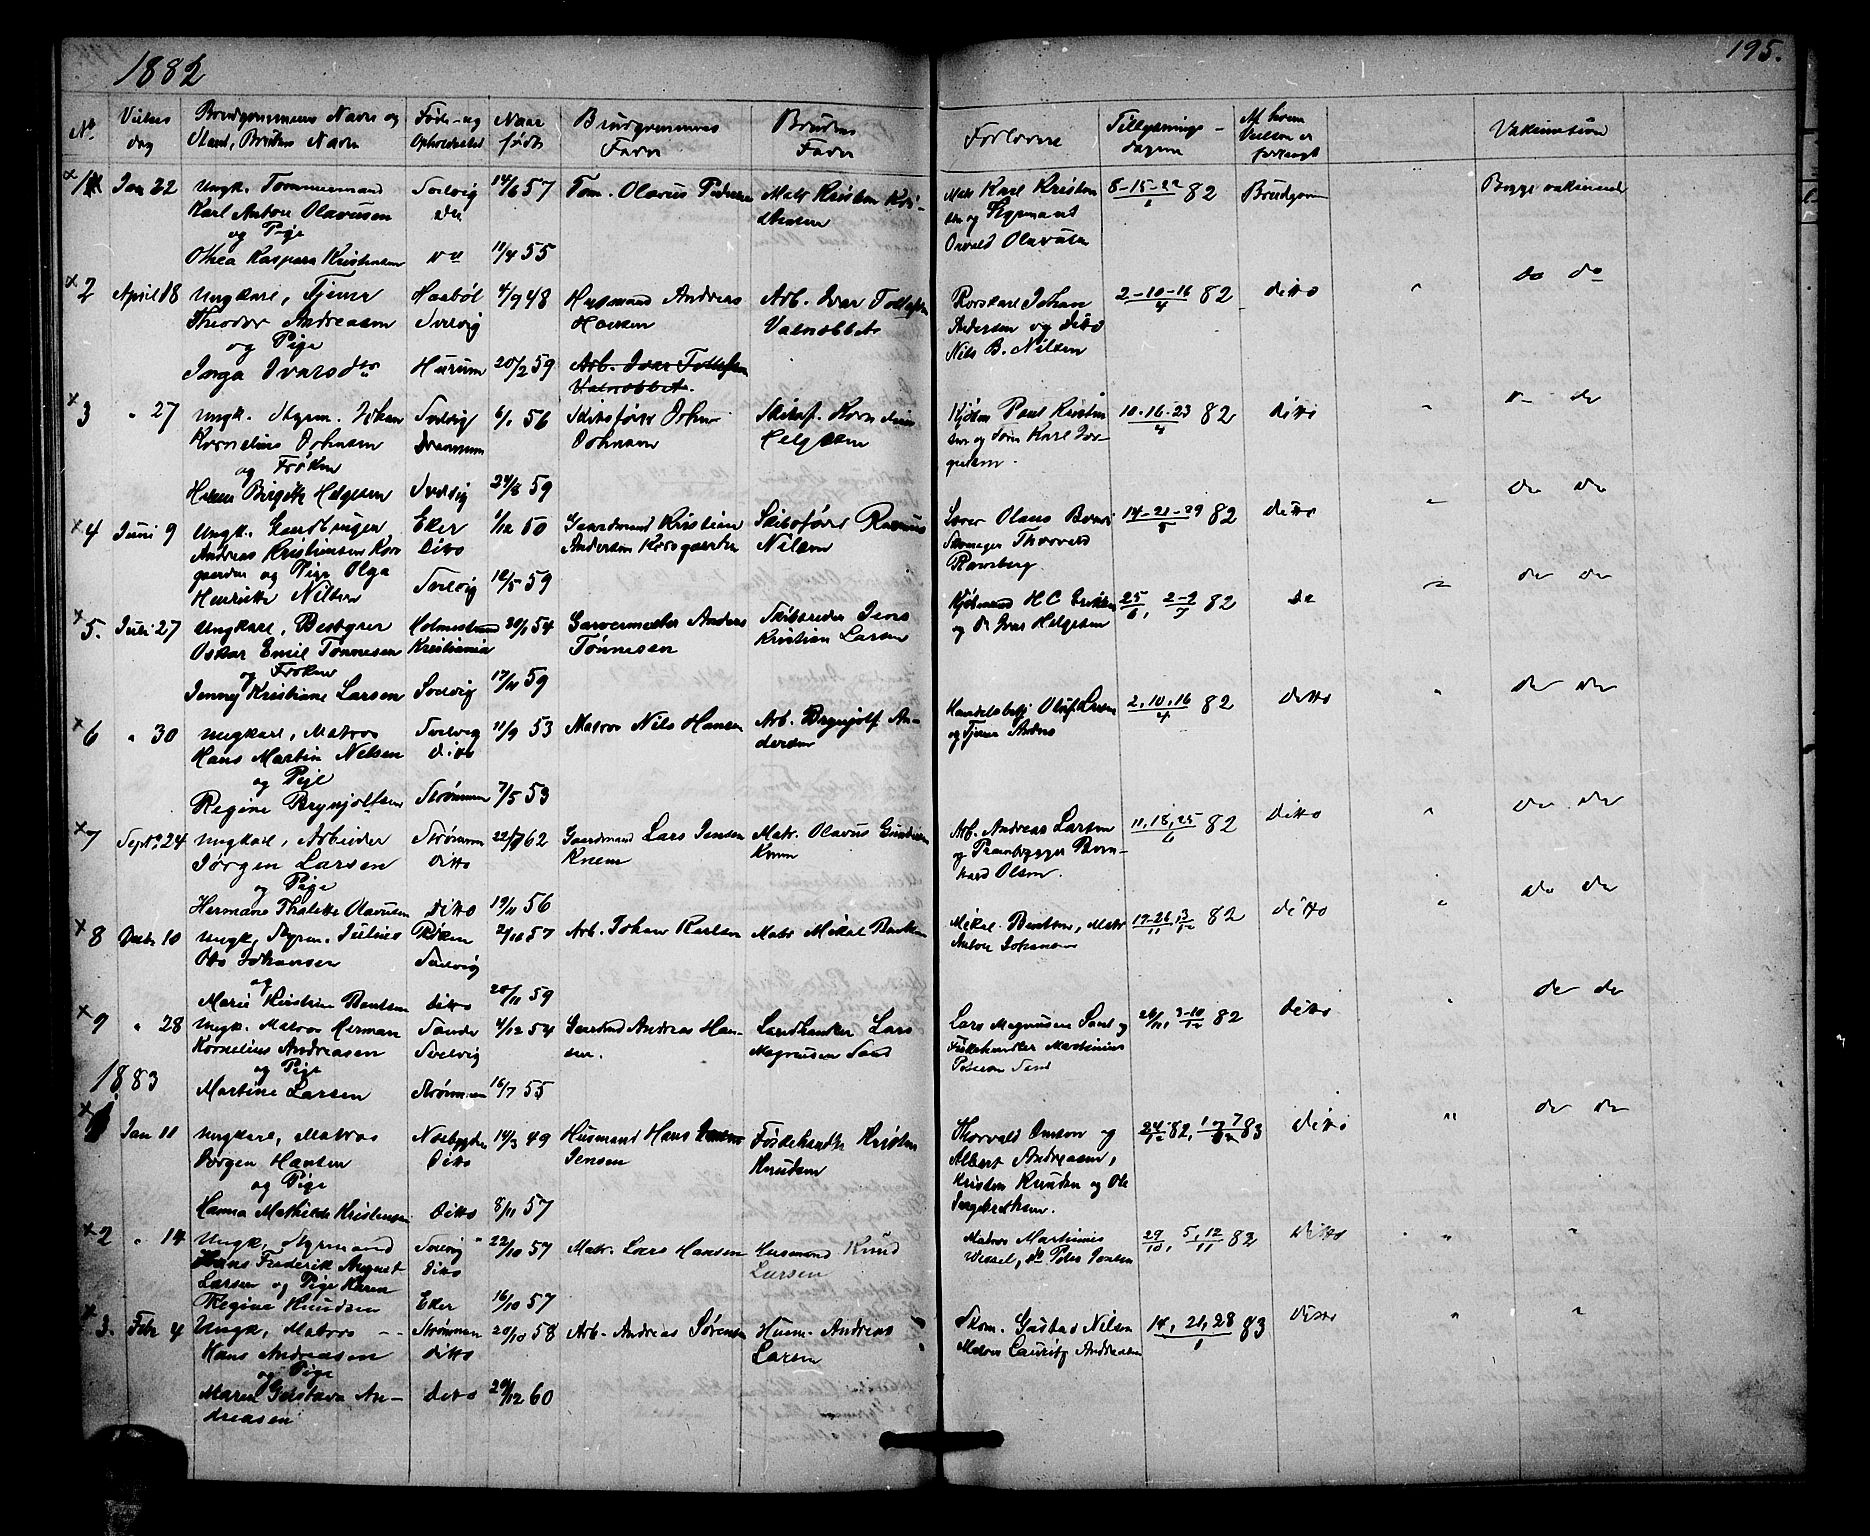 1882
195.
No
Vielses dag
Brudgommens Navn og Stand, Brudens Navn
Føde- og Opholdssted
Naar født
Brudgommens Fader
Brudens Fader
Forlovere
Tillysnings-dagene
Af hvem Vielsen er forlangt
Vakination
1 Jan 22 Ungk. Tømmermand Svelvig 14/6 57 Tøm. Olavus Pedersen Matr Kristen Kri- Matr Karl Kristen 8-15-22/1 82 Brudgom Begge vaksinerede
Karl Anton Olavussen do stensen sen og Styrmand
og Pige Osvald Olavusen
Othea Kaspara Kristensen 11/4 55
2 April 18 Ungkarl, Tjener Haabøl 4/9 48 Husmand Andreas Arb. Ivar Tollefsen Rorskarl Johan 2-10-16/4 82 ditto " do do
Theodor Andreasen Svelvig Hansen Andersen og ditto
og Pige Nils B. Nilsen
Inga Ivarsdtr Hurum 20/2 59 Arb. Ivar Tollefsen
3 " 27 Ungk. Styrm. Johan Svelvig 6/1 56 Skibsfører Johan Skibsf. Kornelius Kjøbm Paul Kristen 10-16-23/4 82 ditto " do
Kornelius Johnsen Drammen Johnsen Helgesen sen og Tøm Karl Jør-
og Frøken gensen.
Helene Birgitte Helgesen Svelvig 24/8 59
4 Juni 9 Ungk. Landbruger Eker 1/12 50 Gaardmand Kristian Skibsfører Rasmus Olaus 14-21-29/5 82 ditto " do do
Andreas Kristiansen Kors Ditto Andersen Korsgaarden Nilsen Thorvald
gaarden og Pige Olga Svelvig 12/5 59 Ramsberg
Henriette Nilsen
5. Juli 27 Ungkarl, Bestyrer Holmestrand 20/1 54 Garvermester Anders Skibsreder Jens Kjøbmand H C Eriksen 25/6, 2-9/7 82 do " do do
Oskar Emil Tønnesen Kristiania Tønnesen Kristian Larsen og do Ivar Helgesen
og Frøken
Jenny Kristiane Larsen Svelvig 17/11 59
6 " 30 Ungkarl, Matros Svelvig 11/9 53 Matros Nils Hansen Arb. Brynjolf An- Handelsbetj Oluf Larsen 2, 10, 16/4 82 ditto " do do
Hans Martin Nilsen ditto dersen og Tjener
og Pige
Regine Brynjolfsen Strømmen 7/5 53
7 Septbr 24 Ungkarl, Arbeider Strømm 62 Gaardmand Lars Jensen Matr. Olavus Arb. Andreas Larsen 11, 18, 25/6 82 ditto " do do
Jørgen Larsen ditto Knem Knem og Prambygger Bern-
og Pige hard Olsen.
Hermane Thalette Olavusen Ditto 19/11 56
8 Decbr 10 Ungk, Styrm. Julius Røken 2/10 57 Arb. Johan Karlsen Matr Mikal Bentsen Mikal Bentsen, Matr 19-26/11, 3/12 82 ditto " do do
Otto Johansen Svelvig Anton Johansen
og
Marie Kirstine Bentsen ditto 20/11 59
9 " 28 Ungk. Matros Herman Sande 4/12 54 Gaardmd Andreas Han- Landhandler Lars Lars Magnusen Sand og 26/11, 3-10/12 82 ditto " do do
Kornelius Andreasen Svelvig sen. Magnusen Sand Fiskehandler Martinius
og Pige
1883
Martine Larsen Strømmen 16/7 55
1 Jan 11 Ungkarl, Matros Nøsbygden 14/3 49 Husmand Hans Fiskehandler Kristen Thorvald og 24/12 82, 1 og 7/1 83 ditto " do do
Jørgen Hansen Ditto Jensen Knudsen Albert Andreasen,
og Pige Kristen Knudsen og Ole
Hanna Mathilde Kristensen Ditto 8/11 57 Ingebrethsen.
2 " 14 Ungk, Styrmand Svelvig 22/10 57 Matr. Lars Hansen Husmand Knud Matros Martinius 29/10, 5, 12/11 82 ditto " "
Hans Frederik August ditto Larsen Wessel, do Peter Jensen
Larsen og Pige Karen
Regine Knudsen Eker 16/10 57
3. Febr 4 Ungk, Matros Strømmen 20/10 58 Arb. Andreas Sørensen Husm. Andreas Skom. Gustav Nilsen 14, 21, 28/1 83 ditto " "
Hans Andreasen ditto Larsen Matros Lauritz Andreasen
og Pige
Maren Gustava An- ditto 29/12 60
dreasen